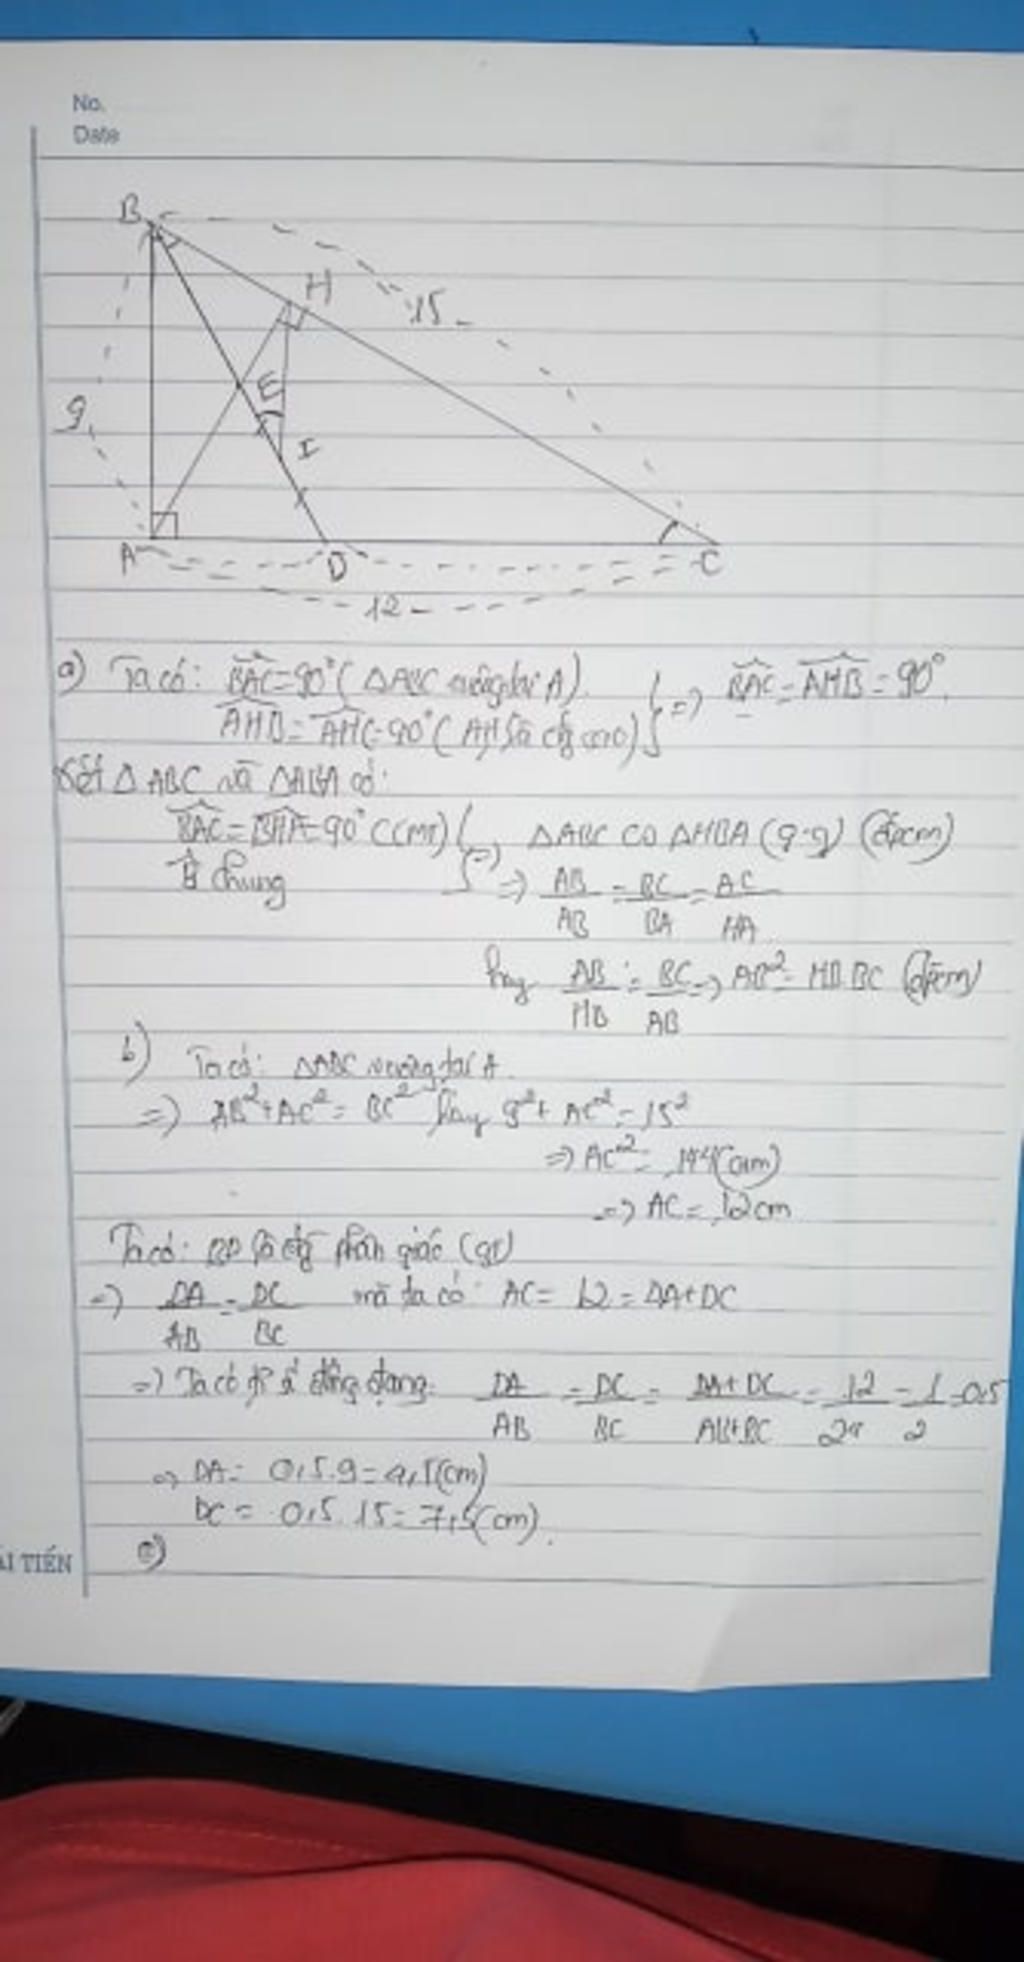 No.
Date
B
H
15
E
9
I
A
D
C
12
a) Ta có: BAC = 90° (ΔABC vuông tại A)
AHB = AHC = 90° (AH là đg cao) } => BAC = AHB = 90°
Xét ΔABC và ΔHBA có:
BAC = BHA = 90° (cmt)
B chung
=> ΔABC ∽ ΔHBA (g.g) (đpcm)
=> AB/AB = BC/BA = AC/HA
hay AB/HB = BC/AB => AB² = HB.BC (đpcm)
b) Ta có: ΔABC vuông tại A
=> AB² + AC² = BC² hay 9² + AC² = 15²
=> AC² = 144 (cm)
=> AC = 12cm
Ta có: BD là đg phân giác (gt)
=> DA/AB = DC/BC mà ta có: AC = 12 = DA + DC
=> Ta có tỉ số đồng dạng: DA/AB = DC/BC = DA+DC/AB+BC = 12/24 = 1/2 = 0,5
=> DA = 0,5.9 = 4,5(cm)
DC = 0,5.15 = 7,5(cm).
c)
ẢI TIẾN